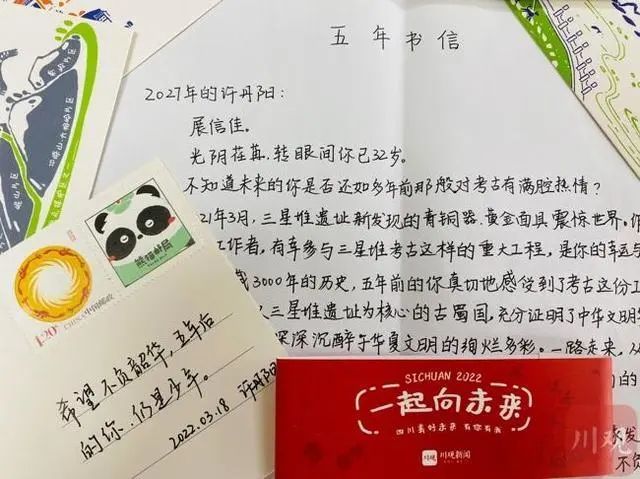 五年书信
2027年的许丹阳:
展信佳。
光阴荏苒,转眼间你已32岁。
不知道未来的你是否还如多年前那般对考古有满腔热情?
21年3月,三星堆遗址新发现的青铜器、黄金面具震惊世界。作
工作者,有幸参与三星堆考古这样的重大工程,是你的幸运
3000年的历史,五年前的你真切地感受到了考古这份工
三星堆遗址为核心的古蜀国,充分证明了中华文明
深深沉醉于华夏文明的绚烂多彩。一路走来,从
的
发
不负
1.20元
CHINA中国邮政
熊猫邮局
希望不负韶华,五年后
的你,仍是少年。
许丹阳
2022.03.18
SICHUAN 2022
一起向未来
四川美好未来 有你有我
川观 川观新闻
川观